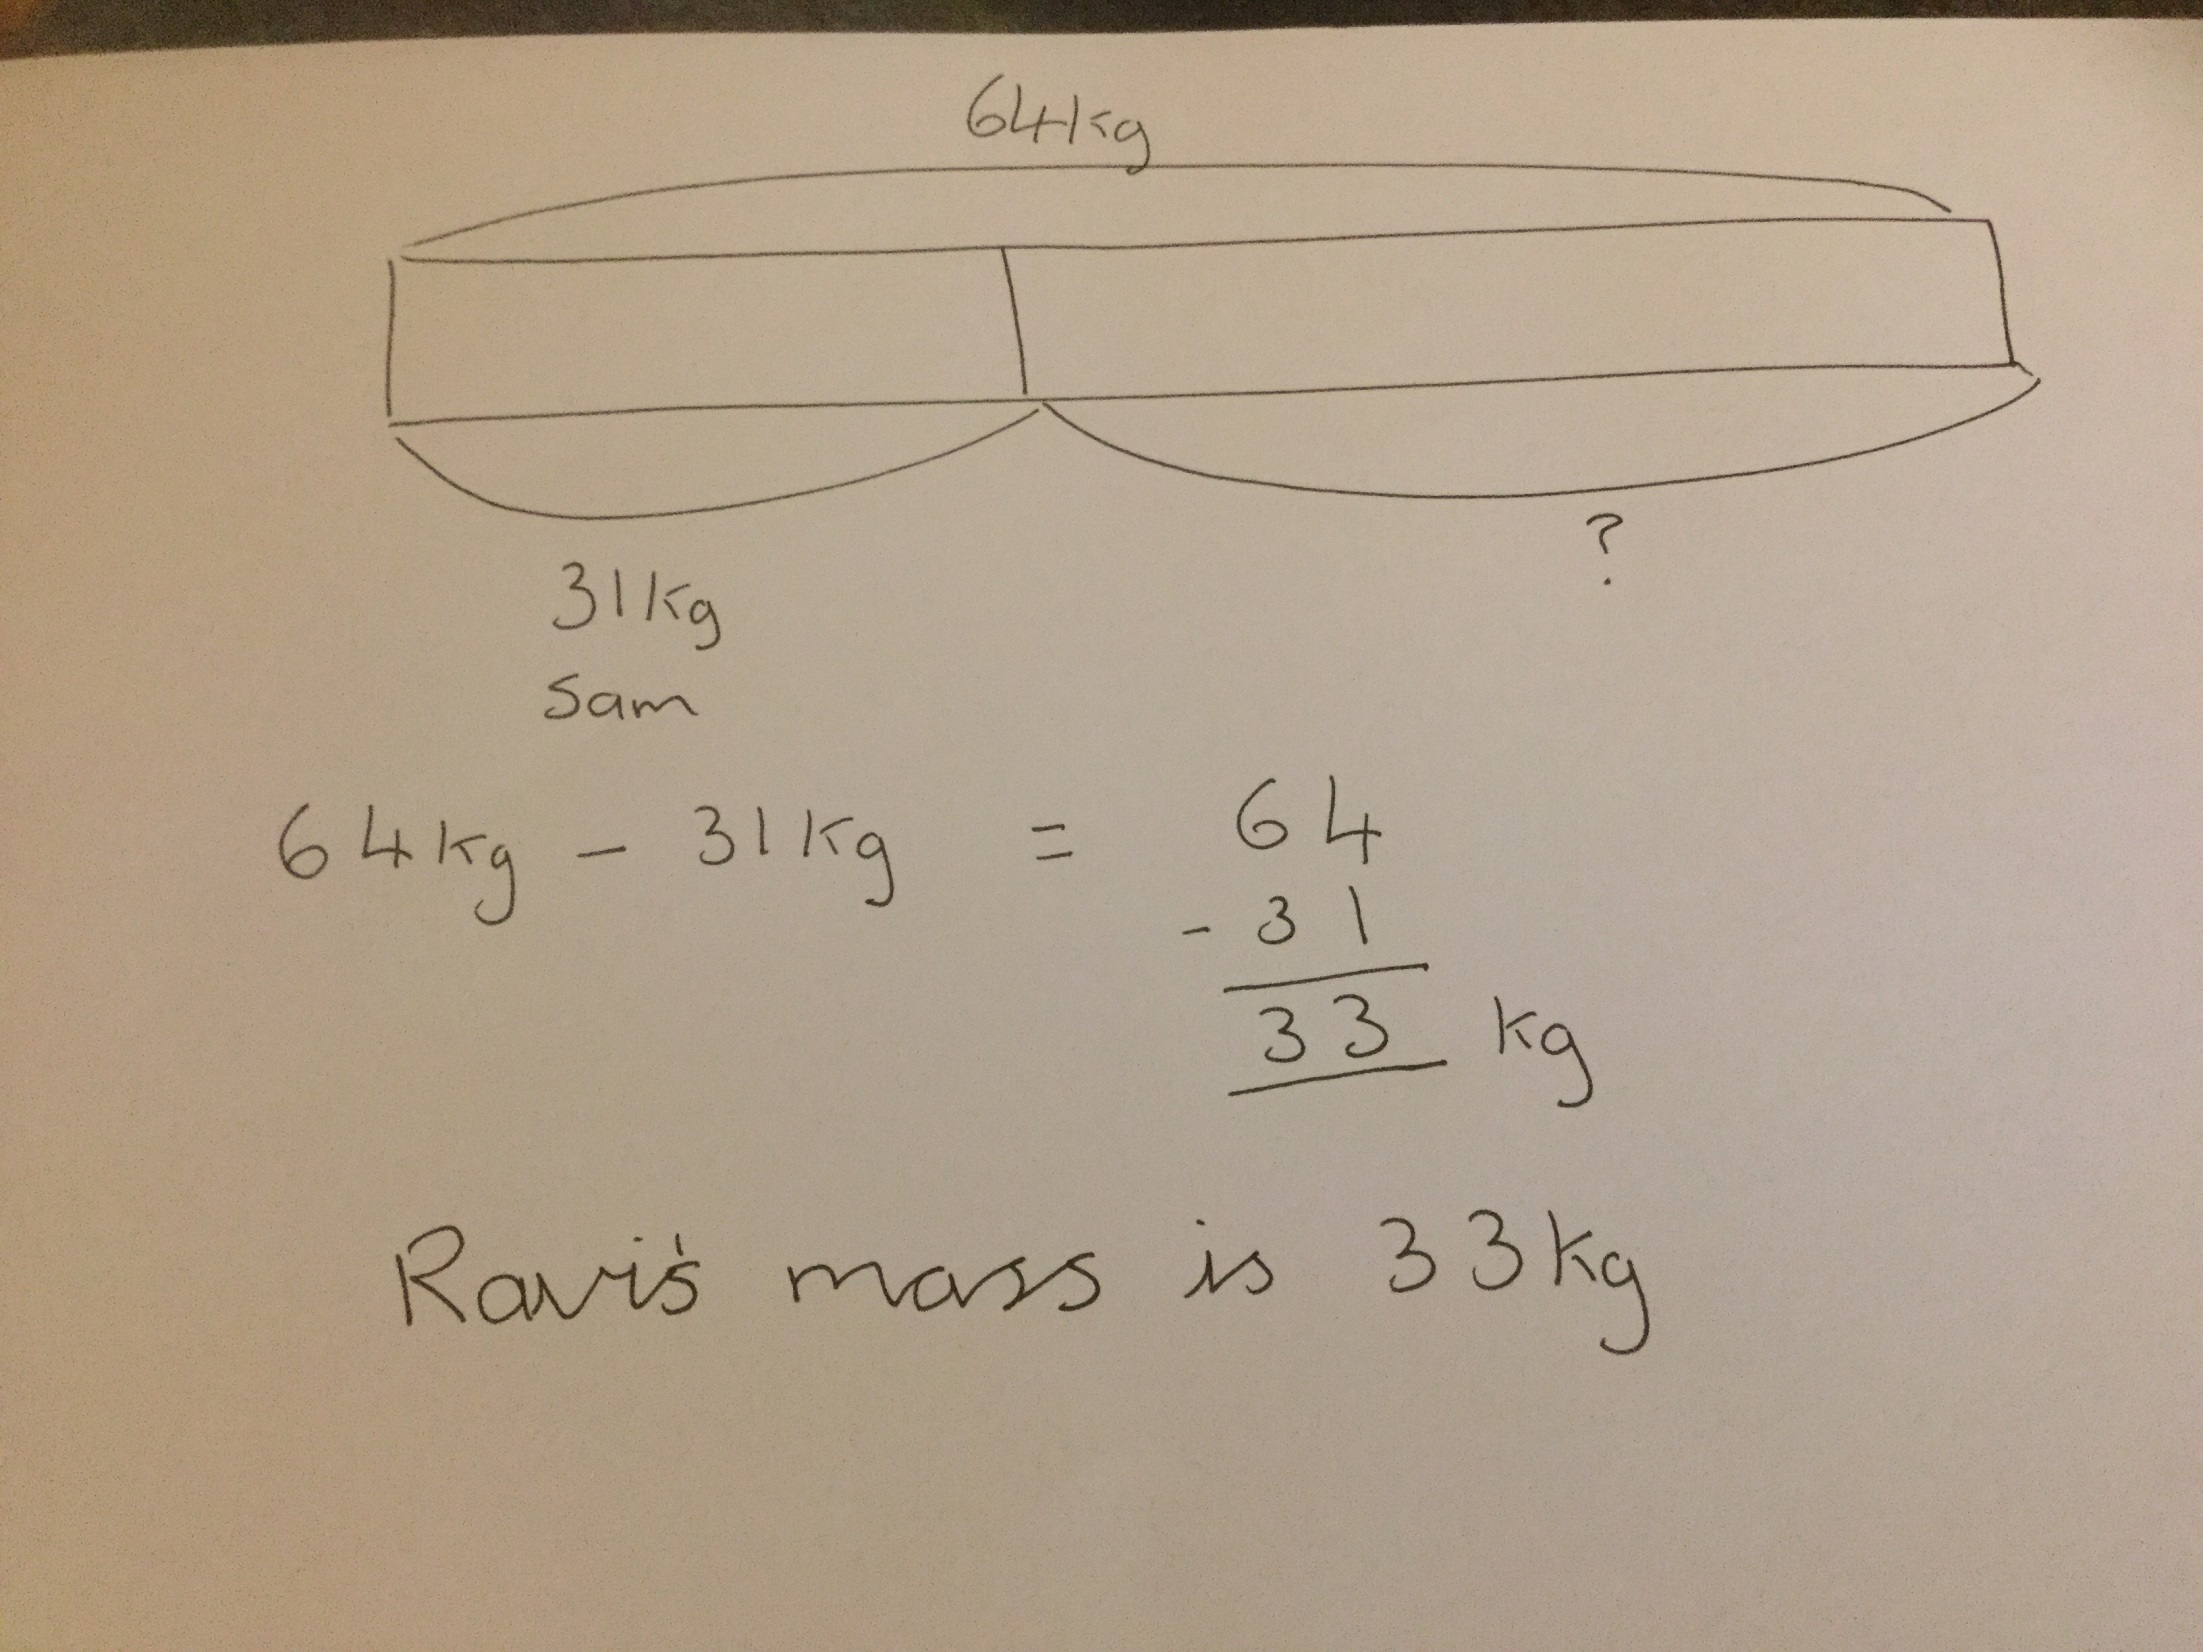 64kg
?
31kg
Sam
64kg - 31kg = 64
- 31
33 kg
Ravi's mass is 33kg